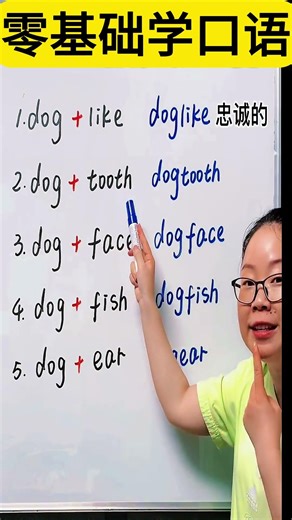 零基础学口语
1. dog + like doglike 忠诚的
2. dog + tooth dogtooth
3. dog + face dogface
4. dog + fish dogfish
5. dog + ear ear